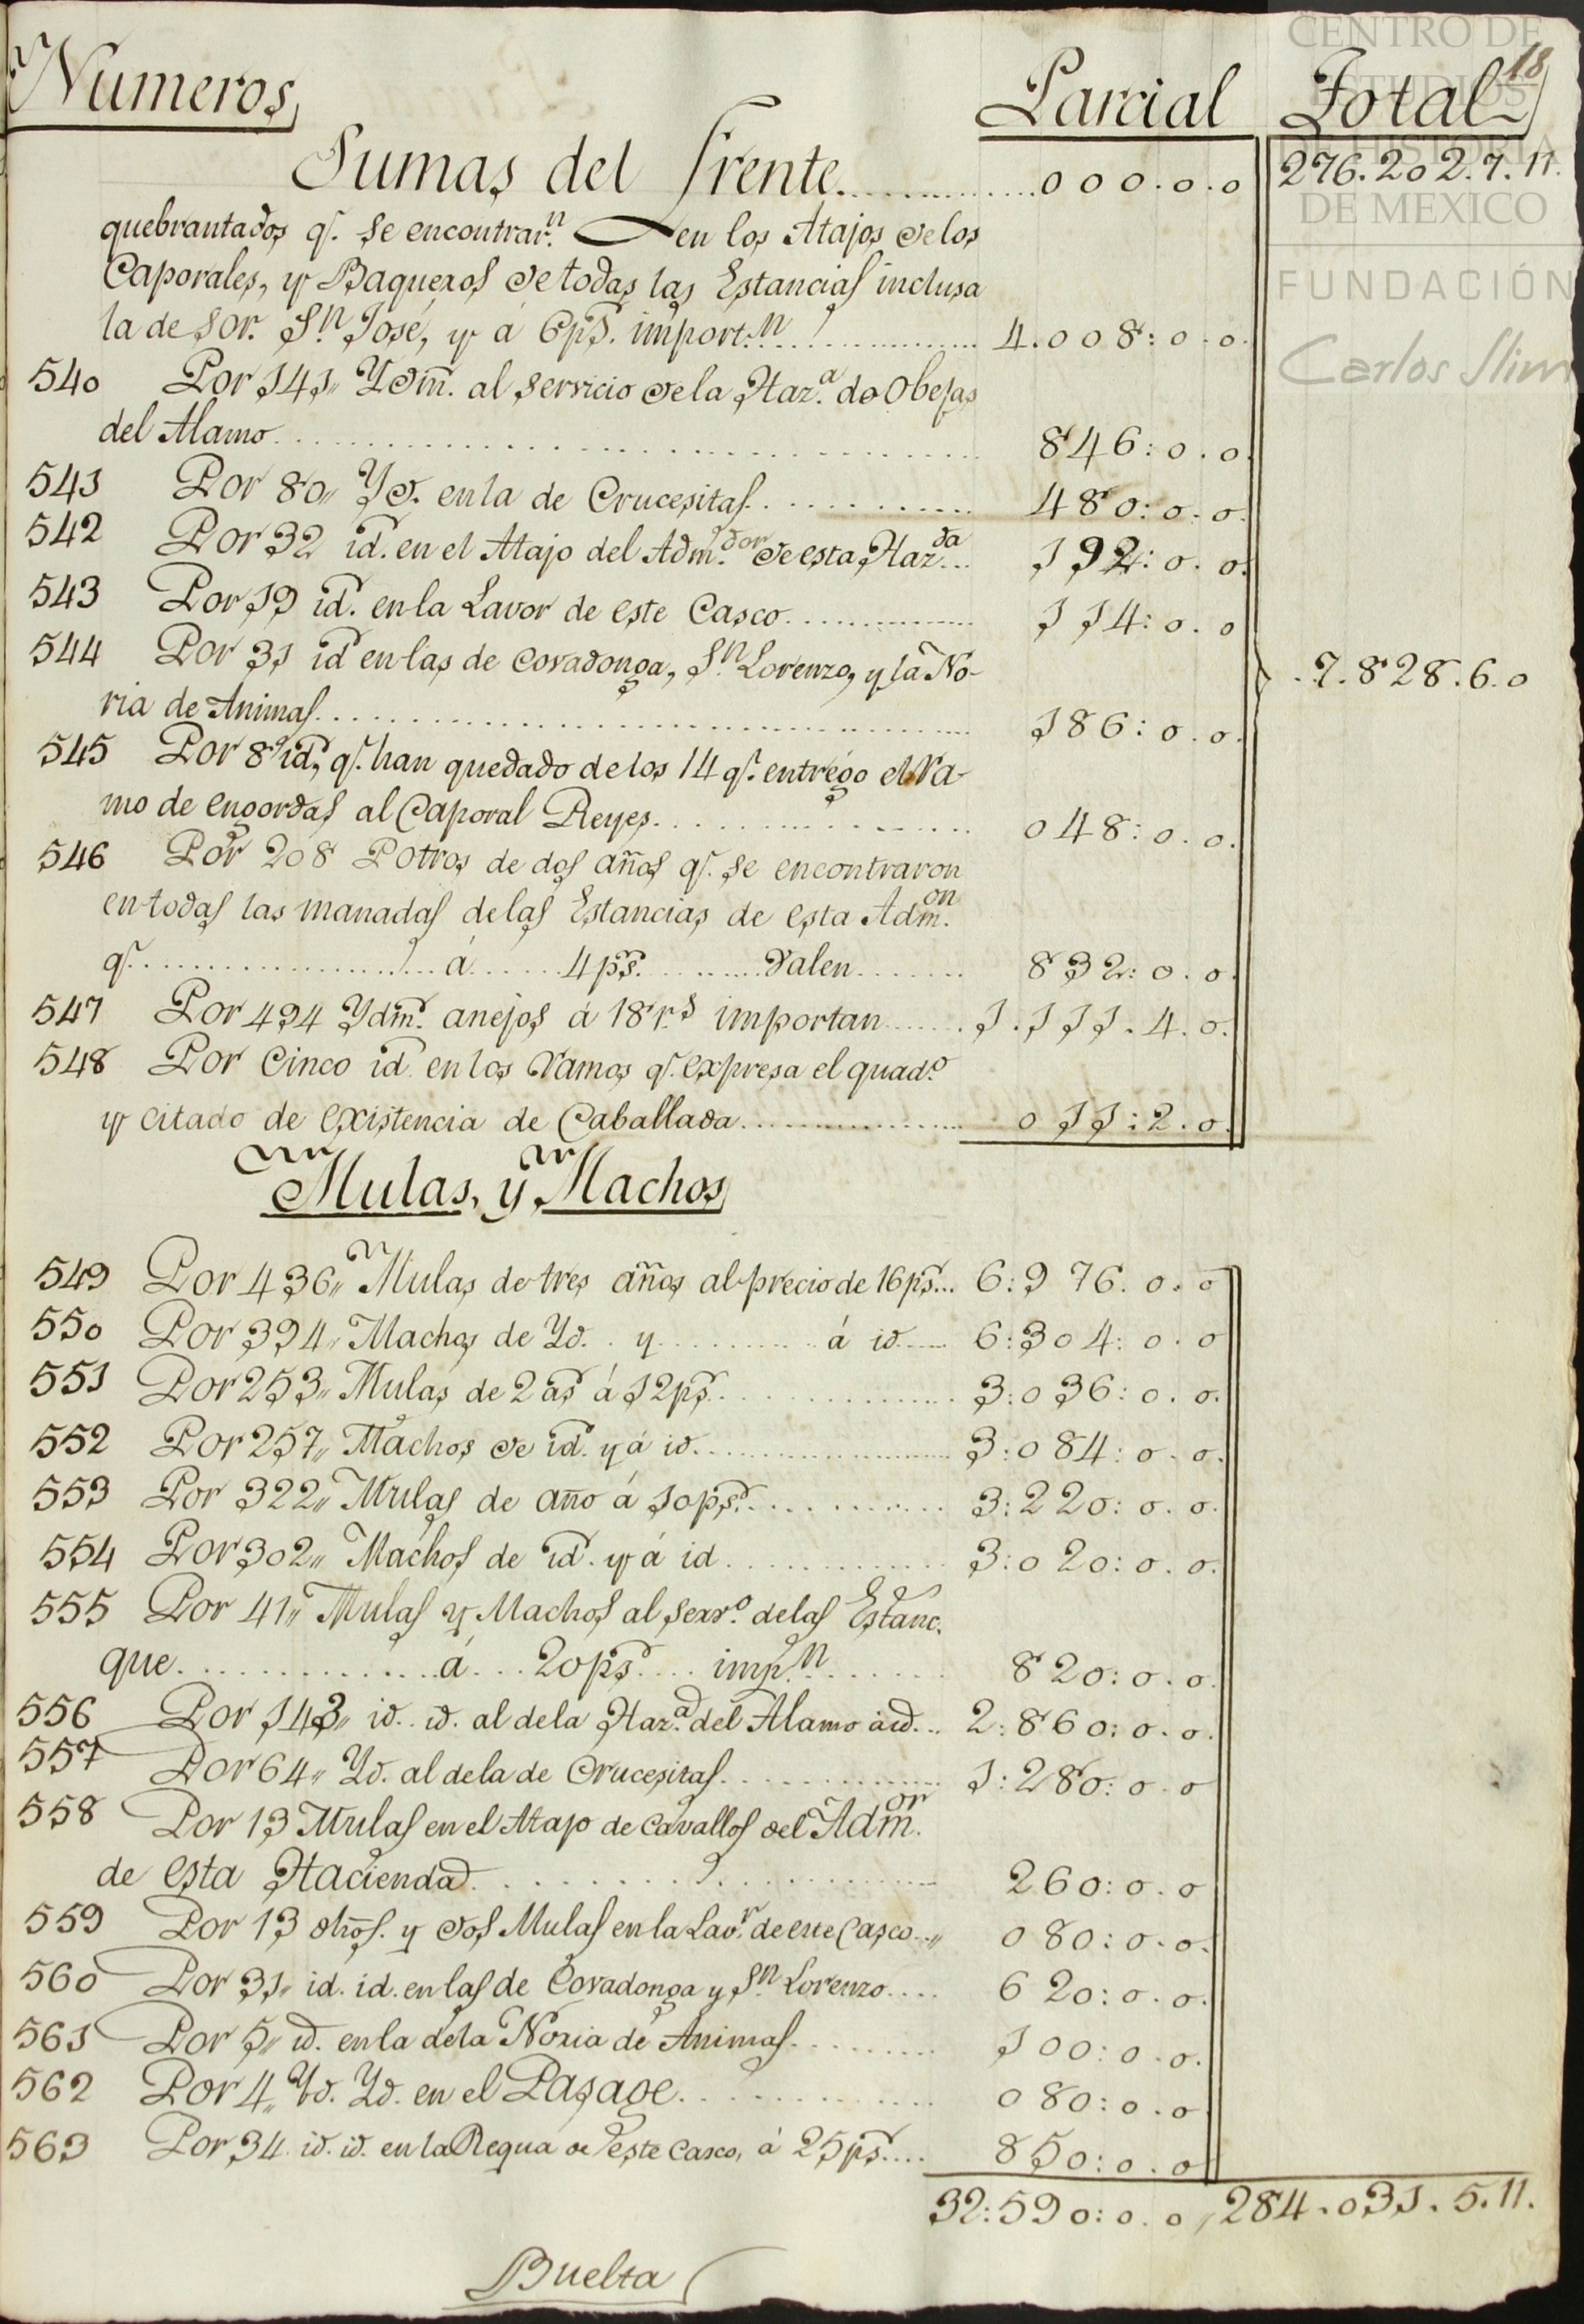 CENTRO DE
ESTUDIOS
DE HISTORIA
DE MEXICO
FUNDACIÓN
Carlos Slim
18
Numeros Parcial Total
Sumas del frente 000.0.0 276.202.7.11.
quebrantados q.e se encontrar.n en los Atajos de los
Caporales, y Baqueros de todas las Estancias inclusa
la de Sor. S.n José, y á 6 ps. import.n 4.008:0.0.
540 Por 141,, Ydm. al servicio de la Haz.a de Obejas
del Alamo 846:0.0.
541 Por 80,, Yd. en la de Crucesitas 480:0.0.
542 Por 32 id. en el Atajo del Adm.dor de esta Haz.da 192:0.0.
543 Por 19 id. en la Lavor de este Casco 114:0.0
544 Por 31 id en las de Covadonga, S.n Lorenzo, y la No-
ria de Animas 186:0.0. 7.828.6.0
545 Por 8 id, q.e han quedado de los 14 q.e entregó el Ra-
mo de engordas al Caporal Reyes 048:0.0.
546 Por 208 Potros de dos años q.e se encontraron
en todas las manadas de las Estancias de esta Adm.on
q.e á 4 ps. valen 832:0.0.
547 Por 494 Ydm. anejos á 18 r.s importan 1.111.4.0.
548 Por Cinco id en los ramos q.e expresa el quad.o
y citado de existencia de Caballada 011:2.0.
Mulas, y Machos
549 Por 436,, Mulas de tres años al precio de 16 ps. 6:976.0.0
550 Por 394,, Machos de Yd. y á id 6:304:0.0
551 Por 253,, Mulas de 2 as á 12 ps. 3:036:0.0.
552 Por 257,, Machos de id. y á id. 3:084:0.0.
553 Por 322,, Mulas de año á 10 ps. 3:220:0.0.
554 Por 302,, Machos de id. y á id 3:020:0.0.
555 Por 41,, Mulas y Machos al serv.o de las Estanc.as
que á 20 ps imp.n 820:0.0.
556 Por 143,, id. id. al de la Haz.a del Alamo á id. 2:860:0.0.
557 Por 64,, Yd. al de la de Crucesitas 1:280:0.0
558 Por 13 Mulas en el Atajo de cavallos del Adm.or
de esta Hacienda 260:0.0
559 Por 13 dhos. y dos Mulas en la Lav.r de este Casco 080:0.0.
560 Por 31,, id. id. en las de Covadonga y S.n Lorenzo 620:0.0.
561 Por 5,, id. en la de la Noria de Animas 100:0.0.
562 Por 4,, Yd. Yd. en el Pasage 080:0.0
563 Por 34 id. id. en la Requa de este Casco, á 25 ps. 850:0.0
32:590:0.0, 284.031.5.11.
Buelta